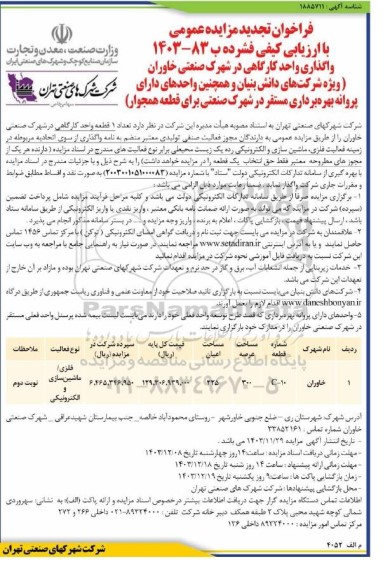 شناسه آگهی: ۱۸۸۵۷۱۱
فراخوان تجدید مزایده عمومی
با ارزیابی کیفی فشرده ب ۸۳-۱۴۰۳
واگذاری واحد کارگاهی در شهرک صنعتی خاوران
( ویژه شرکت‌های دانش بنیان و همچنین واحدهای دارای
پروانه بهره‌برداری مستقر در شهرک صنعتی برای قطعه همجوار)
وزارت صنعت، معدن و تجارت
سازمان صنایع کوچک و شهرک‌های صنعتی ایران
شرکت شهرک‌های صنعتی تهران
شرکت شهرکهای صنعتی تهران به استناد مصوبه هیأت مدیره این شرکت در نظر دارد تعداد ۱ قطعه واحد کارگاهی در شهرک صنعتی
خاوران را از طریق مزایده عمومی به دارندگان مجوز فعالیت صنفی تولیدی معتبر منضم به نامه واگذاری از سوی اتحادیه مربوطه در
زمینه فعالیت فلزی، ماشین سازی و الکترونیکی رده یک زیست محیطی برابر نوع فعالیت های مندرج در اسناد مزایده ( دارنده هر یک از
مجوز های مطروحه معتبر فقط حق انتخاب یک قطعه را در مزایده خواهد داشت) را به شرح ذیل و با جزئیات مندرج در اسناد مزایده
با بهره گیری از سامانه تدارکات الکترونیکی دولت "ستاد" با شماره مزایده (۲۰۰۳۰۰۱۰۵۱۰۰۰۰۸۳) به صورت نقد و اقساط مطابق ضوابط
و مقررات جاری شرکت واگذار نماید، ضمنا رعایت موارد ذیل الزامی می باشد.
۱- برگزاری مزایده صرفا از طریق سامانه تدارکات الکترونیکی دولت می باشد و کلیه مراحل فرآیند مزایده شامل پرداخت تضمین
(سپرده) شرکت در مزایده
۲- علاقمندان به شرکت در مزایده می بایست جهت ثبت نام و دریافت گواهی امضای الکترونیکی ( توکن ) با مرکز تماس ۱۴۵۶ تماس
حاصل نمایند و یا به آدرس اینترنتی www.setadiran.ir مراجعه نمایند.
این شرکت نسبت به دریافت فایل آموزشی نحوه شرکت در مزایده اقدام نمایند
۳- خدمات زیربنایی از جمله انشعابات آب، برق و گاز در حد نرم و تعهدات شرکت شهرکهای صنعتی تهران بوده و مازاد بر آن خارج از
تعهدات این شرکت می باشد.
۴- شرکت‌های دانش بنیان می‌بایست نسبت به بارگذاری تائید صلاحیت خود از معاونت علمی و فناوری ریاست جمهوری از طریق درگاه
www.daneshbonyan.ir اقدام لازم را معمول آورند.
۵- واحدهای دارای پروانه بهره‌برداری که قصد طرح توسعه واحد فعلی خود را دارند می‌بایست لیست بیمه شده پرسنل واحد فعلی مستقر
در شهرک صنعتی خاوران را در مدارک خود بارگزاری نمایند.
ردیف نام شهرک شماره قطعه مساحت عرصه مساحت اعیان قیمت کل پایه (ریال) سپرده شرکت در مزایده (ریال) نوع فعالیت ملاحظات
۱ خاوران C-۱۰ ۳۰۰ ۲۲۵ ۱۲۹,۳۰۶,۹۳۹,۰۰۰ ۶,۴۶۵,۳۴۶,۹۵۰ فلزی/ ماشین‌سازی و الکترونیکی نوبت دوم
آدرس شهرک: شهرستان ری - ضلع جنوبی خاورشهر - روستای محمودآباد خالصه_ جنب بیمارستان شهید عراقی _ شهرک صنعتی
خاوران شماره تماس : ۳۳۸۵۲۱۶۱
- تاریخ انتشار آگهی مزایده : ۱۴۰۳/۱۱/۲۹ می باشد .
- مهلت زمانی دریافت اسناد مزایده : ساعت:۱۴ روز چهارشنبه تاریخ ۱۴۰۳/۱۲/۰۸
- مهلت زمانی ارائه پیشنهاد : ساعت ۱۴ روز شنبه تاریخ ۱۴۰۳/۱۲/۱۸
- زمان بازگشایی پاکت ها : ساعت:۹ روز یکشنبه تاریخ ۱۴۰۳/۱۲/۱۹
- محل بازگشایی پیشنهادها : شرکت شهرک های صنعتی تهران
اطلاعات تماس دستگاه مزایده گزار جهت دریافت اطلاعات بیشتر درخصوص اسناد مزایده و ارائه پاکت (الف): به نشانی: سهروردی
شمالی کوچه شهید محبی پلاک ۲ طبقه همکف دبیر خانه شرکت تلفن : ۸۹۳۲۴۰۰۰-۰۲۱ داخلی ۲۶۶ و ۲۷۲
مرکز تماس امور مزایده : ۸۹۳۲۴۰۰۰ داخلی ۱۲۶
م الف ۴۰۵۲
شرکت شهرکهای صنعتی تهران